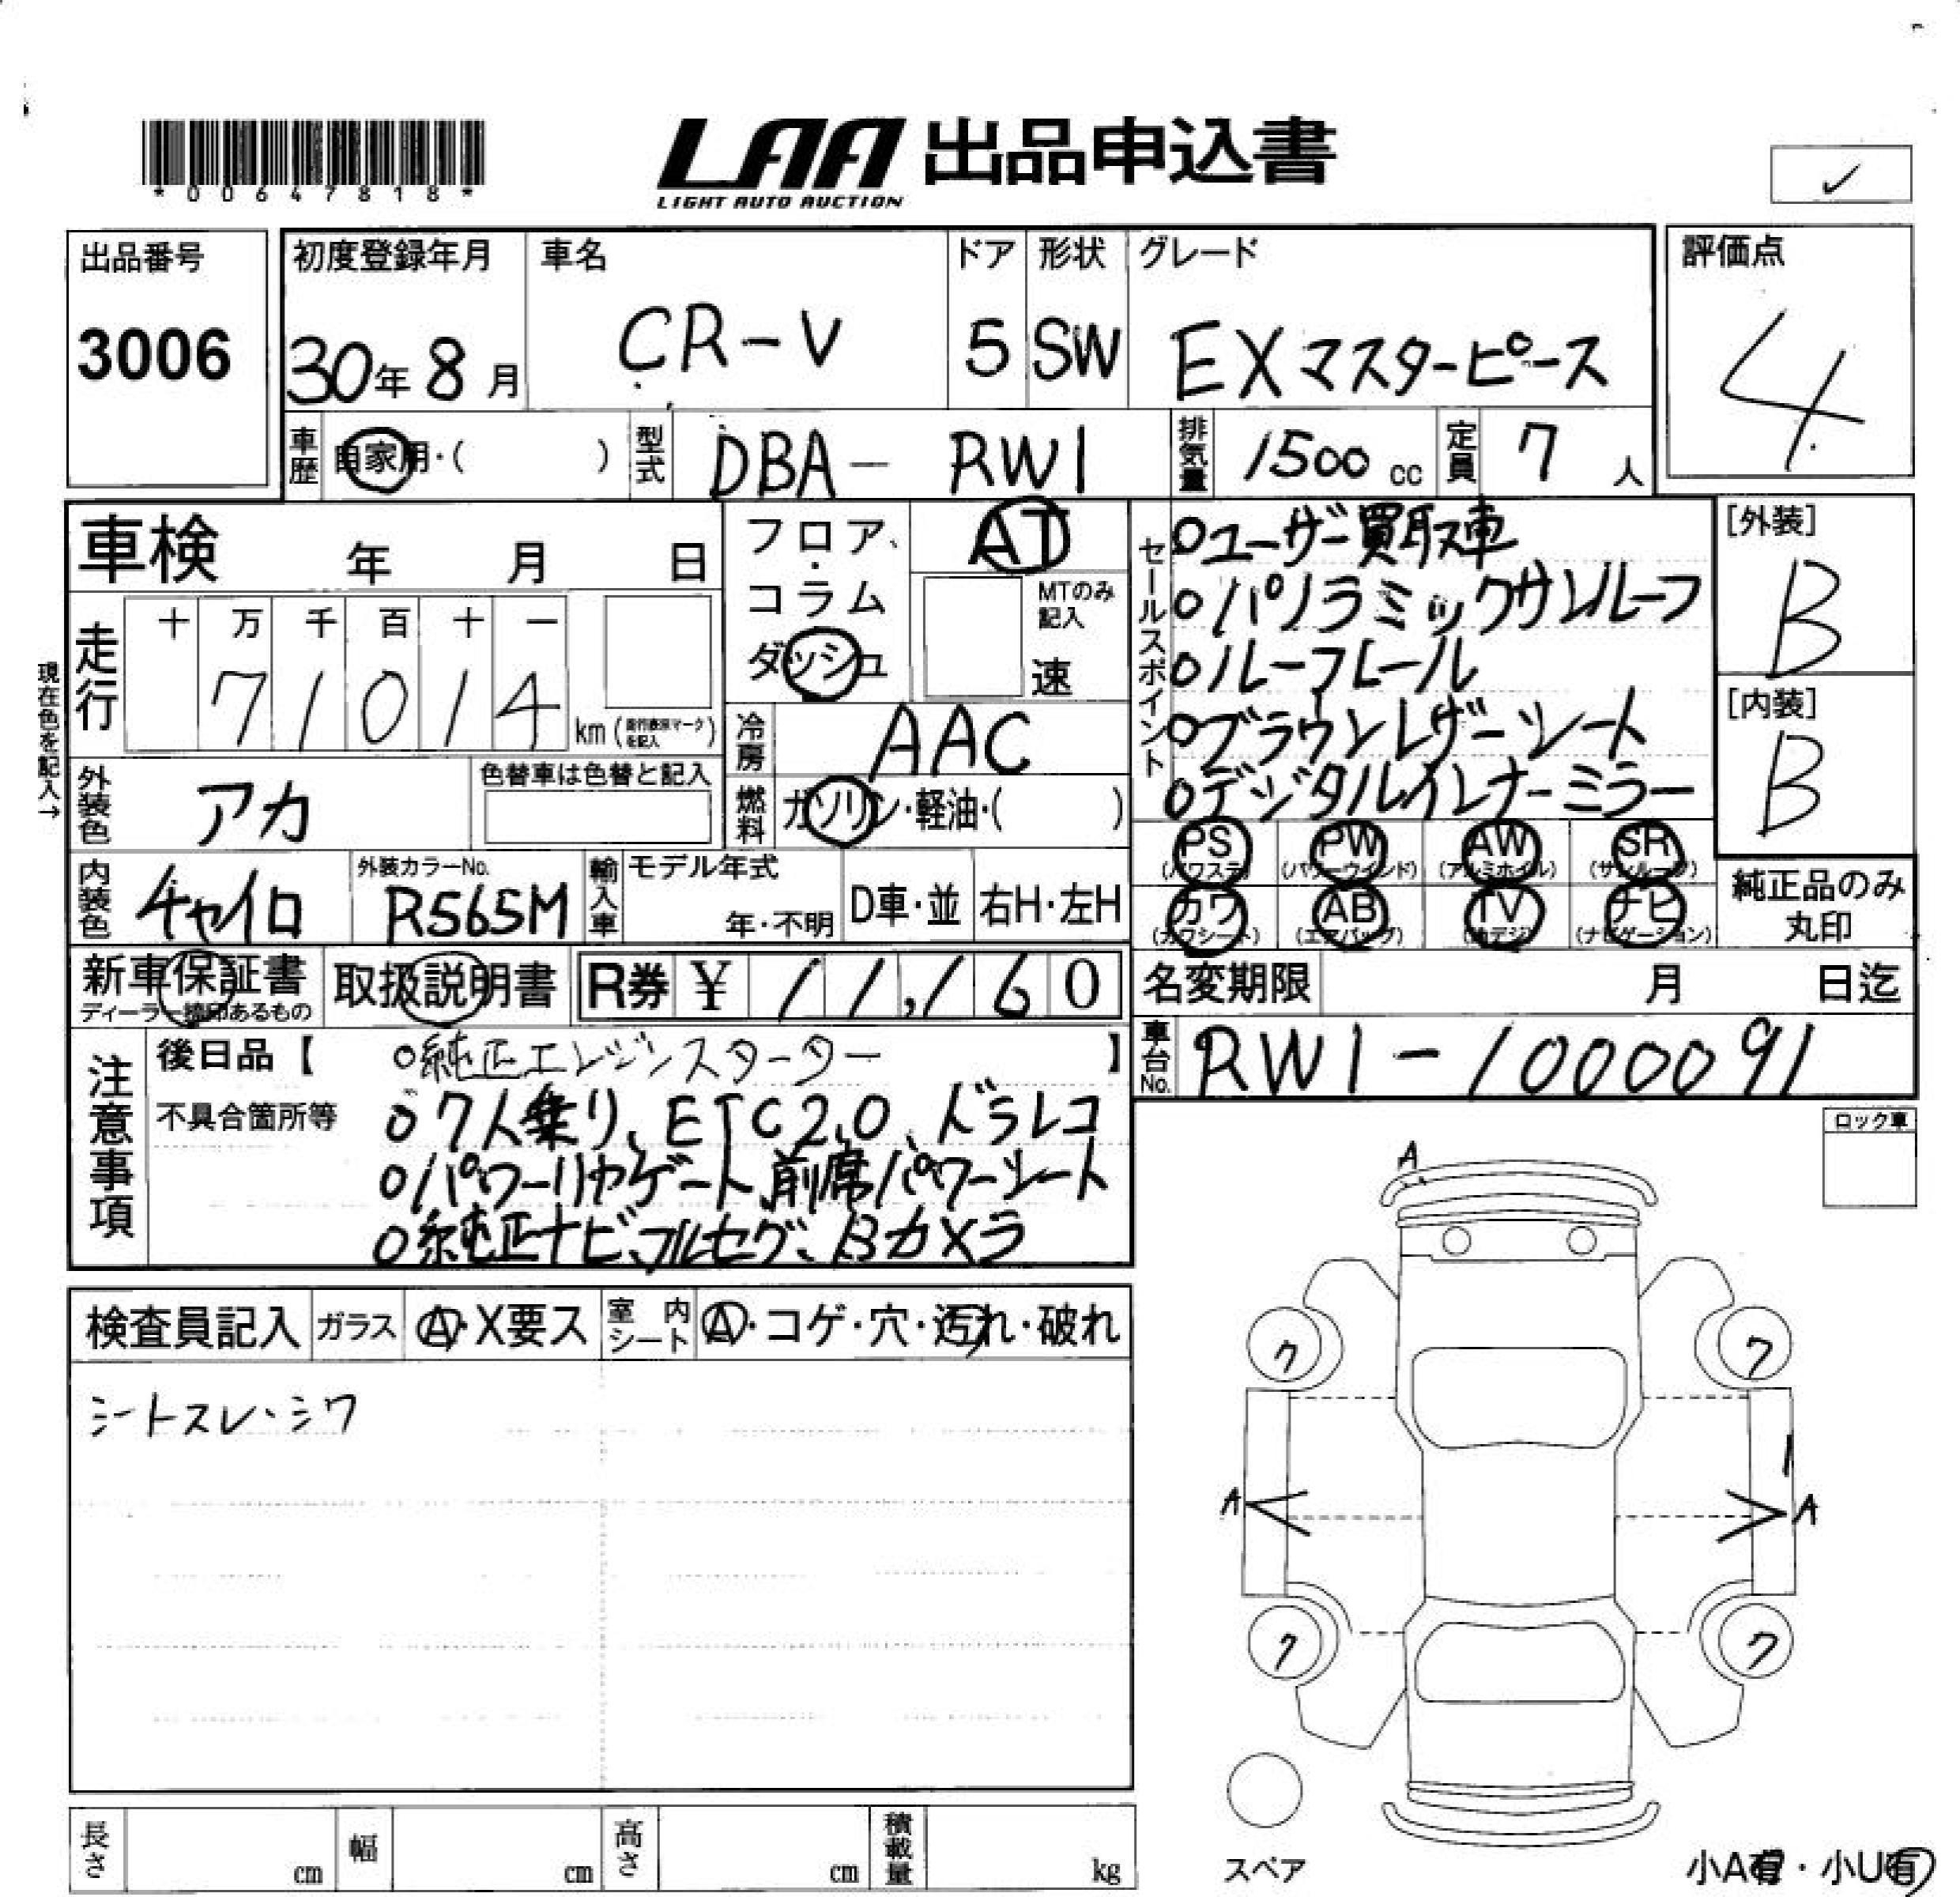 *00647818*
LAA 出品申込書
LIGHT AUTO AUCTION
出品番号
3006
初度登録年月
30年8月
車名
CR-V
ドア
5
形状
SW
グレード
EXマスターピース
評価点
4
車歴
自家用・( )
型式
DBA- RW1
排気量
1500cc
定員
7人
車検 年 月 日
フロア・コラム
ダッシュ
AT
MTのみ記入
速
現在色を記入→
走行
十 万 千 百 十 一
7 1 0 1 4
km(走行表示マークを記入)
冷房
AAC
外装色
アカ
色替車は色替と記入
燃料
ガソリン・軽油・( )
内装色
チャイロ
外装カラーNo.
R565M
輸入車
モデル年式
年・不明
D車・並
右H・左H
新車保証書
ディーラー捺印あるもの
取扱説明書
R券 ¥ 11,160
セールスポイント
○ユーザー買取車
○パノラミックサンルーフ
○ルーフレール
○ブラウンレザーシート
○デジタルインナーミラー
[外装]
B
[内装]
B
PS PW AW SR
(パワステ) (パワーウインド) (アルミホイル) (サンルーフ)
カワ AB TV ナビ
(カワシート) (エアバッグ) (地デジ) (ナビゲーション)
純正品のみ丸印
名変期限 月 日迄
車台No.
RW1-1000091
注意事項
後日品【 ○純正エンジンスターター 】
不具合箇所等
○7人乗り、ETC2.0、ドラレコ
○パワーリヤゲート、前席パワーシート
○純正ナビ、フルセグ、Bカメラ
ロック車
検査員記入
ガラス
A・X要ス
室内シート
A・コゲ・穴・汚れ・破れ
シートスレ・シワ
A
ク
ク
A
A
ク
ク
スペア
小A有・小U有
長さ cm
幅 cm
高さ cm
積載量 kg